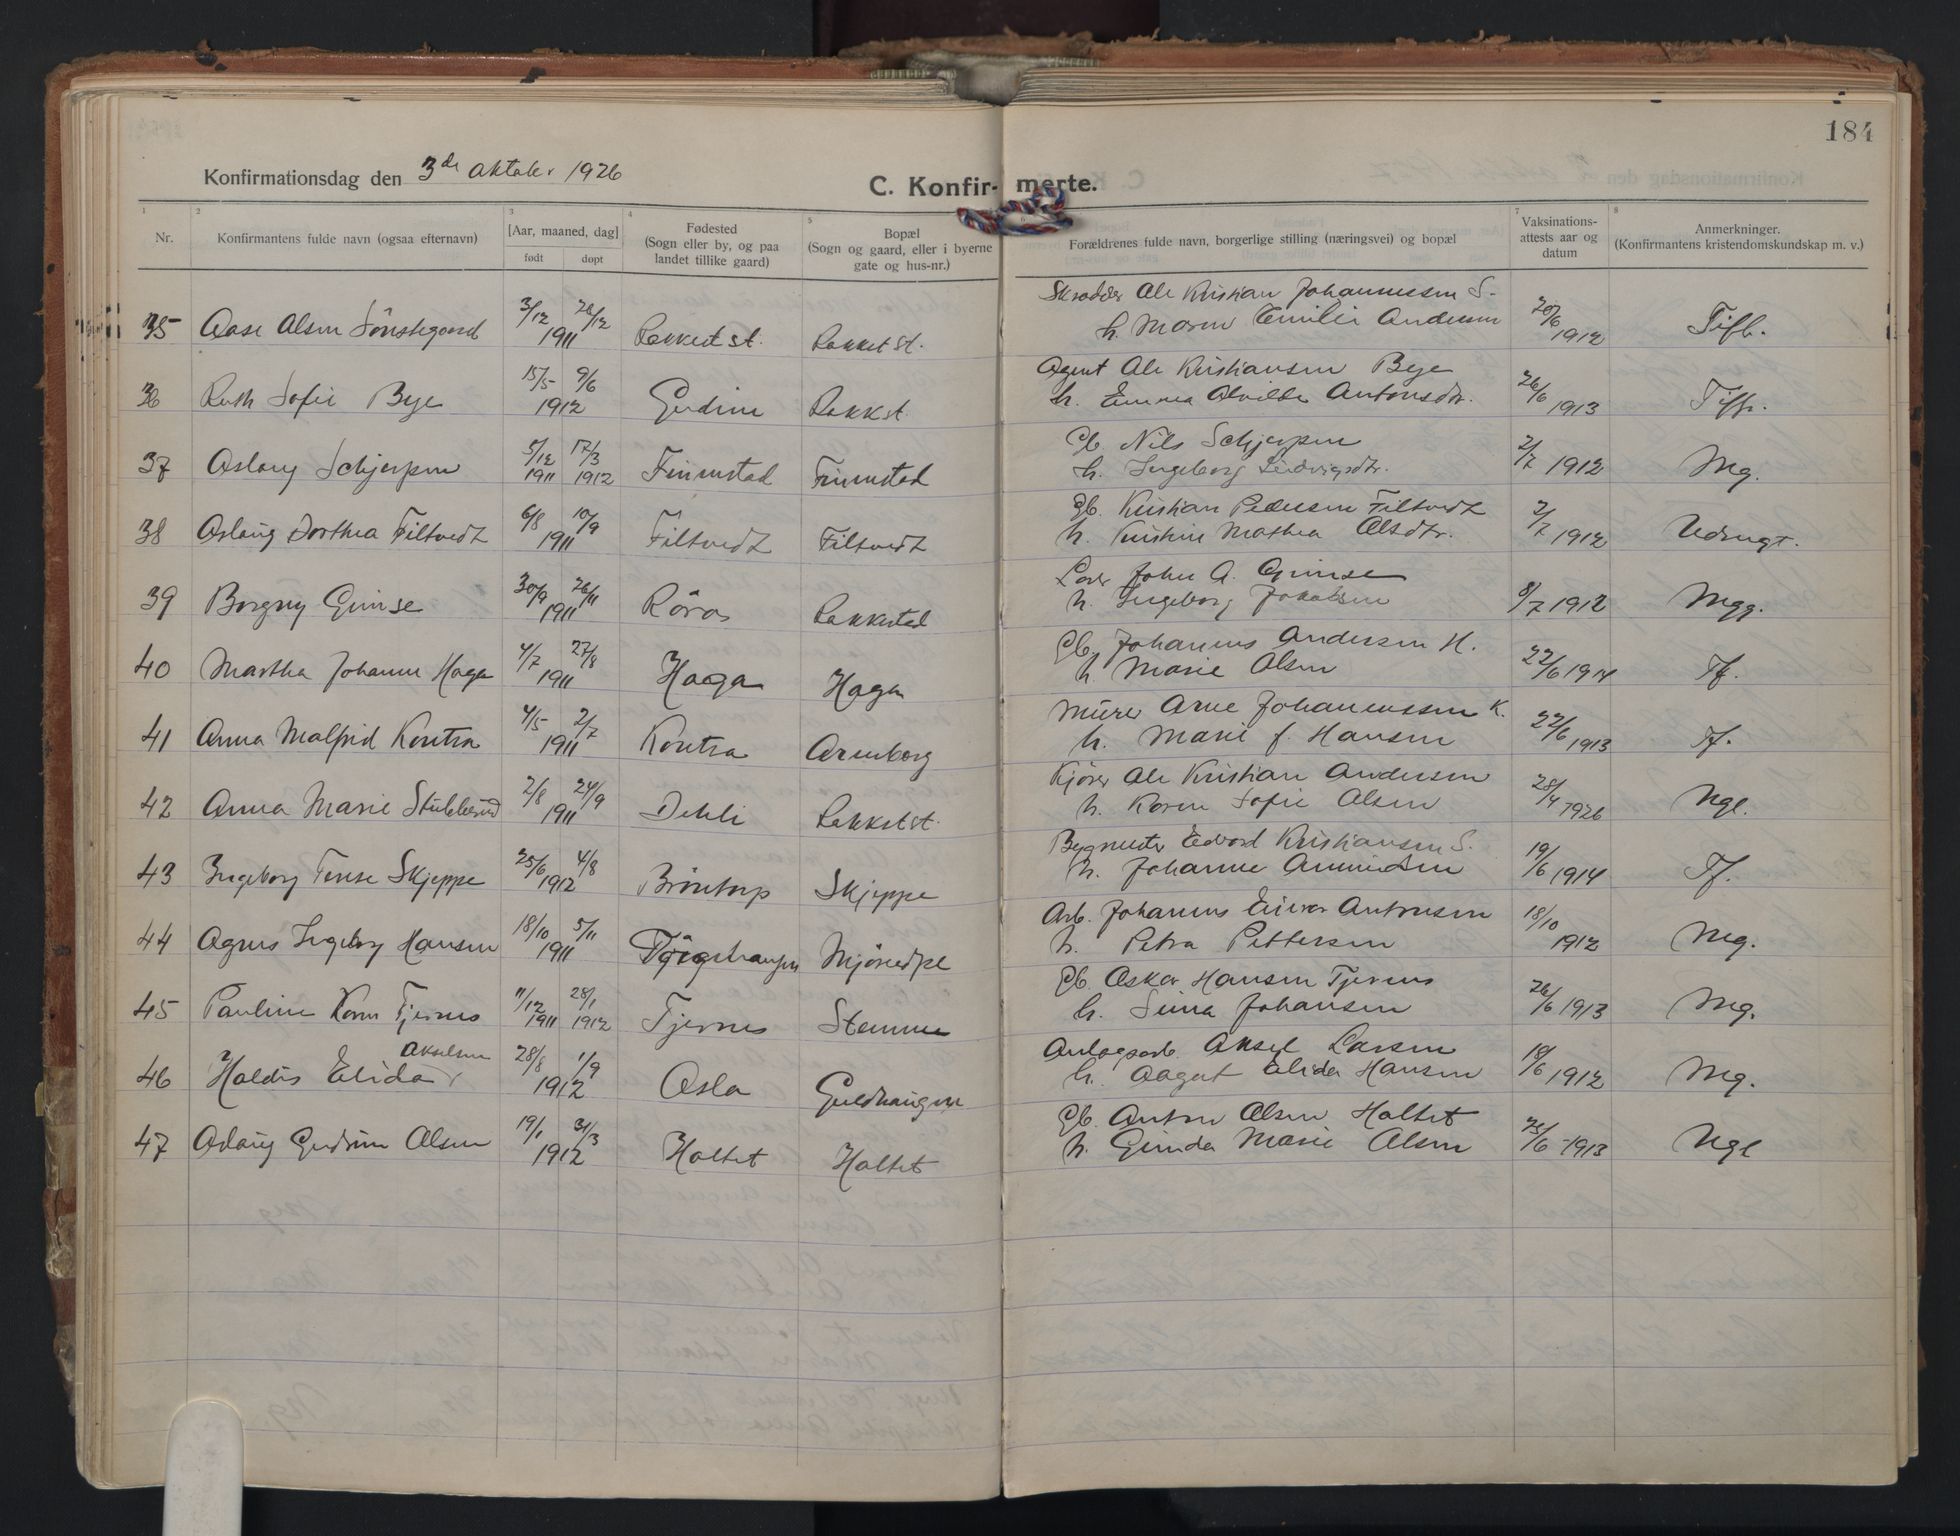 184
Konfirmationsdag den 3de Oktober 1926
C. Konfirmerte.
Nr. | Konfirmantens fulde navn (ogsaa efternavn) | [Aar, maaned, dag] født døpt | Fødested (Sogn eller by, og paa landet tillike gaard) | Bopæl (Sogn og gaard, eller i byerne gate og hus-nr.) | Forældrenes fulde navn, borgerlige stilling (næringsvei) og bopæl | Vaksinations-attests aar og datum | Anmerkninger. (Konfirmantens kristendomskundskap m. v.)
35 Aase Olsen Sönstegaard 3/12 26/12 1911 Rakkest st. Rakkest st. Skrædder Ole Kristian Johannessen S. h. Maren Emilie Andersen 20/6 1912 Tifb.
36 Ruth Sofie Bye 15/5 9/6 1912 Rakkst. Agent Ole Kristiansen Bye h. Emma Alvilde Antonsdtr. 26/6 1913
37 Aslaug Schjerpen 5/12 1911 17/3 1912 Finnestad Finnestad Gb. Nils Schjerpen h. Ingeborg Ludvigsdtr. 2/7 1912 Mg.
38 Aslaug Dorthea Filtvedt 6/8 10/9 1911 Filtvedt Filtvedt Gb. Kristian Pedersen Filtvedt h. Kristine Mathea Olsdtr. 2/7 1912 Udmgt.
39 Borgny Grimse 30/9 26/11 1911 Röros Rakkestad John A. Grimse h. Ingeborg 8/7 1912 Mgg.
40 Martha Johanne Haga 4/7 27/8 1911 Haga Haga Gb. Johannes Andersen H. h. Marie Olsen 22/6 1914 Tf.
41 Anna Malfrid Kontra 4/5 2/7 1911 Kontra Arneborg Murer Arne Johannessen K. h. Marie f. Hansen 22/6 1913 Tf.
42 Anna Marie Stubberud 2/8 24/9 1911 Dehli Rakkest st. Kjörer Ole Kristian Andersen h. Karen Sofie Olsen 28/4 1926 Ngl.
43 Ingeborg Terese Skjeppe 25/6 4/8 1912 Bröntorp Skjeppe Bygmester Edvard Kristiansen S. h. Johanne Amundsen 19/6 1914 Tf.
44 Agnes Ingeborg Hansen 18/10 5/11 1911 Mjörudpl Arb. Johannes Einar Antonsen h. Petra Pettersen 18/10 1912 Mg.
45 Pauline Karen Tjernes 11/12 1911 28/1 1912 Tjernes Stemme Gb. Oskar Hansen Tjernes h. Sina Johansen 26/6 1913 Mg.
46 Haldis Elida Akselsen 28/8 1/9 1912 Oslo Guldhaugen Anlægsarb. Aksel Larsen h. Aagot Elida Hansen 18/6 1912 Mg.
47 Aslaug Gudrun Olsen 19/1 31/3 1912 Holtet Holtet Gb. Anton Olsen Holtet h. Gunda Marie Olsen 25/6 1913 Ngl